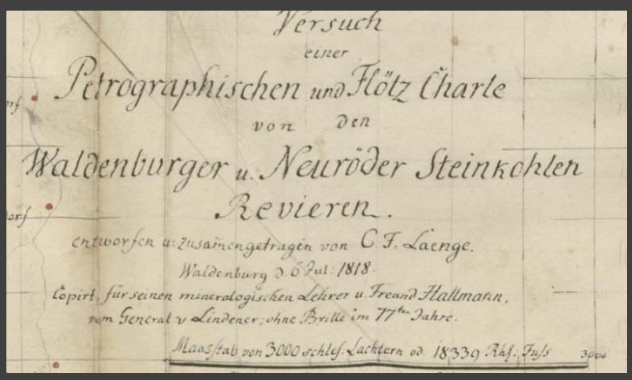 Versuch
einer
Petrographischen und Flötz Charte
von den
Waldenburger u. Neuröder Steinkohlen
Revieren.
entworfen u: zusam̄engetragen von C. F. Laenge.
Waldenburg d. 6 Jul: 1818.
Copirt, für seinen mineralogischen Lehrer u. Freund Hallmann,
vom General v Lindener, ohne Brille im 77ten Jahre.
Maasstab von 3000 schles. Lachtern od. 18339 Rhl: Fuss
3000
orf
orf